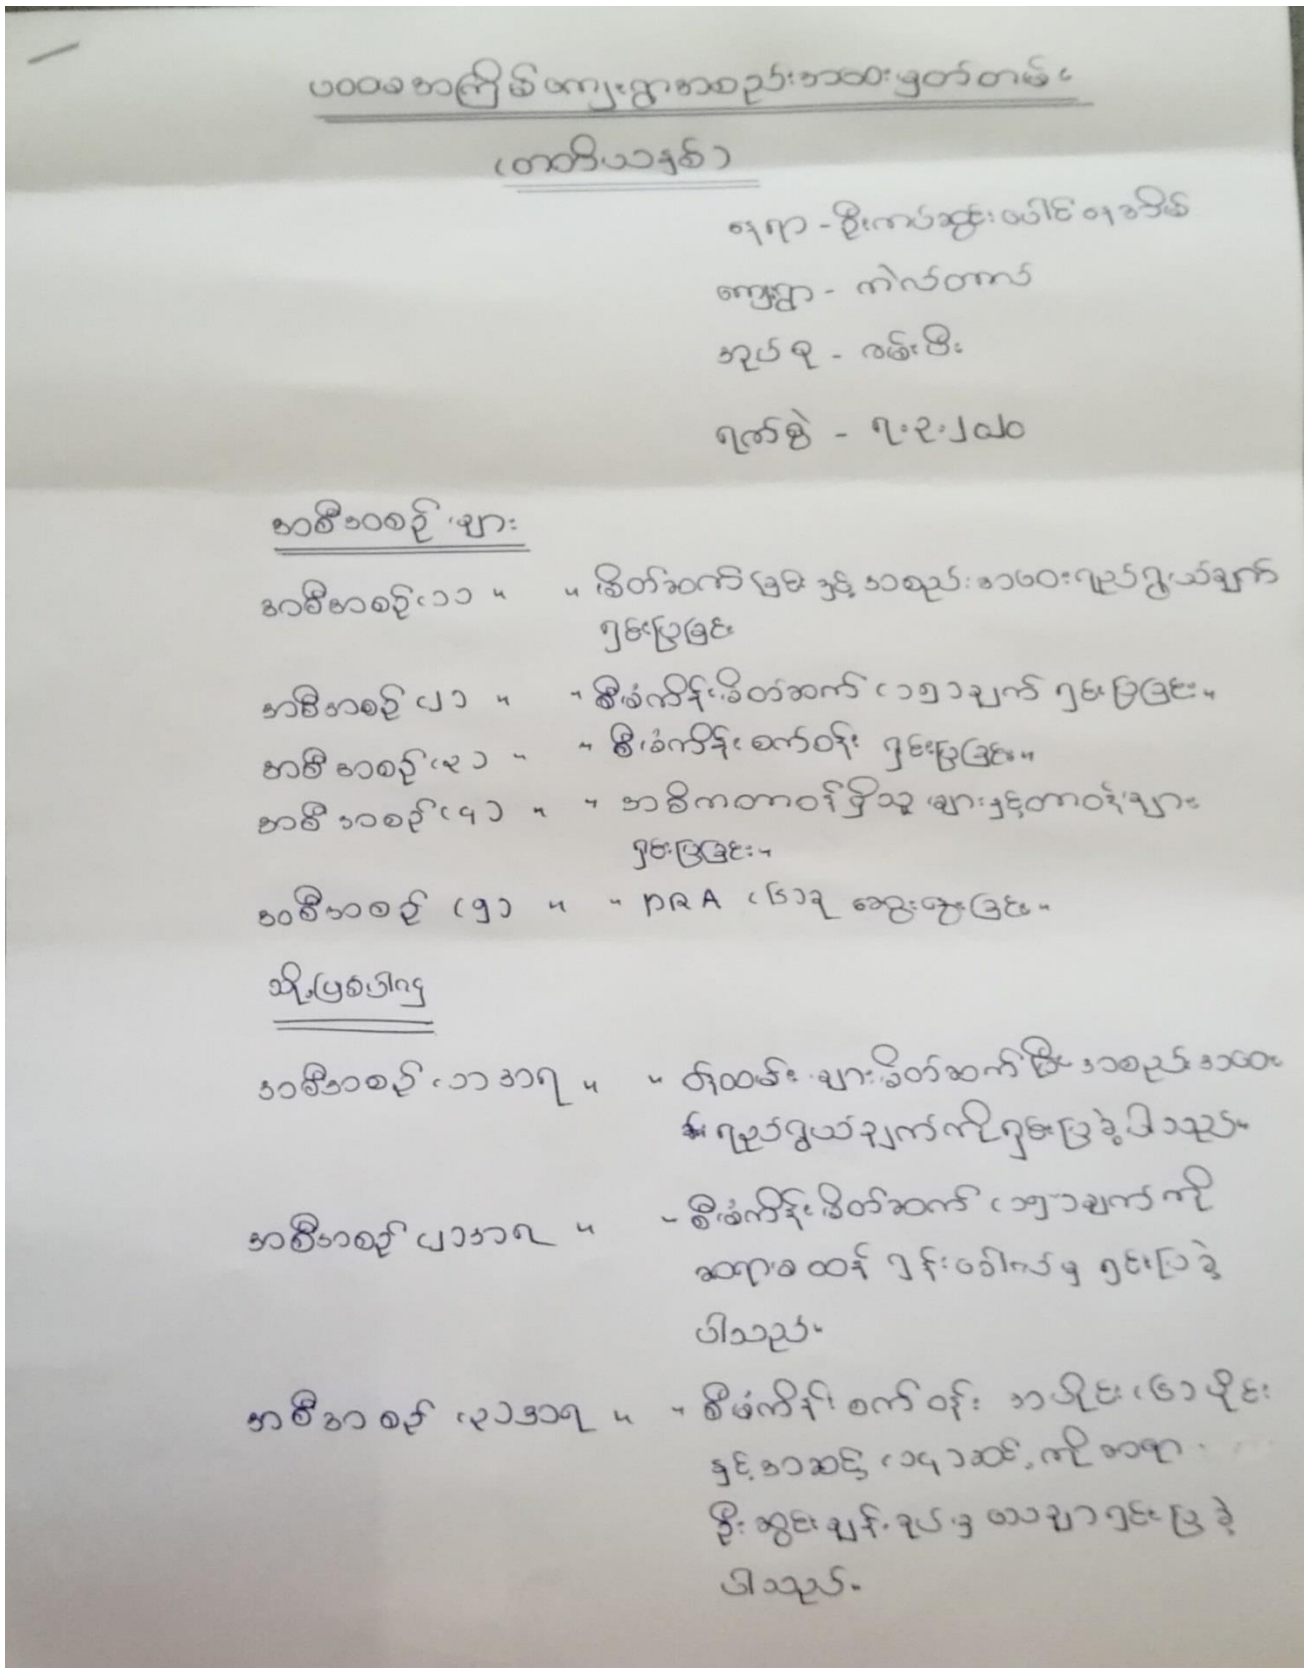 ပထမအကြိမ်ကျေးရွာအစည်းအဝေးမှတ်တမ်း
(တတိယနှစ်)
နေရာ - ဦးကပ်ဆွင်းပေါင်နေအိမ်
ကျေးရွာ - ကဲလ်တာလ်
အုပ်စု - လမ်းဗီး
ရက်စွဲ - ၇.၃.၂၀၂၀
အစီအစဉ်များ
အစီအစဉ်(၁) ။ ။ မိတ်ဆက်ခြင်းနှင့်အစည်းအဝေးရည်ရွယ်ချက်
ရှင်းပြခြင်း
အစီအစဉ်(၂) ။ ။ စီမံကိန်းမိတ်ဆက် (၁၅)ချက် ရှင်းပြခြင်း။
အစီအစဉ်(၃) ။ ။ စီမံကိန်းစက်ဝန်း ရှင်းပြခြင်း။
အစီအစဉ်(၄) ။ ။ အဓိကတာဝန်ရှိသူများနှင့်တာဝန်များ
ရှင်းပြခြင်း။
အစီအစဉ် (၅) ။ ။ PRA (၆)ခု ဆွေးနွေးခြင်း။
သို့ဖြစ်ပါ၍
အစီအစဉ်(၁)အရ ။ ။ ဝန်ထမ်းများမိတ်ဆက်ပြီး အစည်းအဝေး
ရည်ရွယ်ချက်ကိုရှင်းပြခဲ့ပါသည်။
အစီအစဉ်(၂)အရ ။ ။ စီမံကိန်းမိတ်ဆက် (၁၅)ချက်ကို
ဆရာမ ထန် ရှန်းခေါလ်မှ ရှင်းပြခဲ့
ပါသည်။
အစီအစဉ် (၃)အရ ။ ။ စီမံကိန်းစက်ဝန်း အပိုင်း(၆)ပိုင်း
နှင့်အဆင့် (၁၄)ဆင့်ကို ဆရာ
ဦးဆွင်းချန်ခုပ်မှ သေချာရှင်းပြခဲ့
ပါသည်။